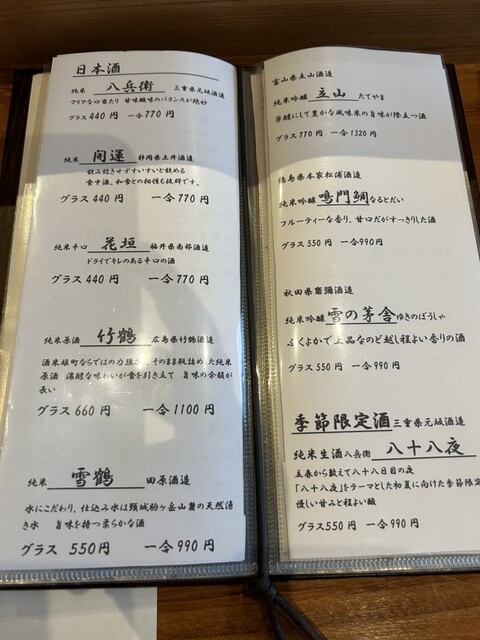 日本酒
純米 八兵衛 三重県元坂酒造
クリアな口当たり 甘味酸味のバランスが絶妙
グラス 440 円 一合 770 円
純米 開運 静岡県土井酒造
飲み飽きせずすいすいと飲める
食中酒。和食との相性も抜群です。
グラス 440 円 一合 770 円
純米辛口 花垣 福井県南部酒造
ドライでキレのある辛口の酒
グラス 440 円 一合 770 円
純米原酒 竹鶴 広島県竹鶴酒造
酒米雄町ならではの力強さ、そのまま瓶詰めした純米
原酒 濃醇な味わいが食を引き立て 旨味の余韻が
長い
グラス 660 円 一合 1100 円
純米 雪鶴 田原酒造
水にこだわり、仕込み水は頸城駒ヶ岳山麓の天然湧
き水 旨味を持つ柔らかな酒
グラス 550円 一合 990 円
富山県立山酒造
純米吟醸 立山 たてやま
芳醇にして豊かな風味米の旨味が際立つ酒
グラス 770 円 一合 1320 円
徳島県本家松浦酒造
純米吟醸 鳴門鯛 なるとだい
フルーティーな香り、甘口だがすっきりした酒
グラス 550 円 一合990円
秋田県齋彌酒造
純米吟醸 雪の茅舎 ゆきのぼうしゃ
ふくよかで上品なのど越し程よい香りの酒
グラス 550 円 一合 990 円
季節限定酒 三重県元坂酒造
純米生酒 八兵衛 八十八夜
立春から数えて八十八日目の夜
「八十八夜」をテーマとした初夏に向けた季節限定
優しい甘みと程よい酸
グラス550 円 一合 990 円